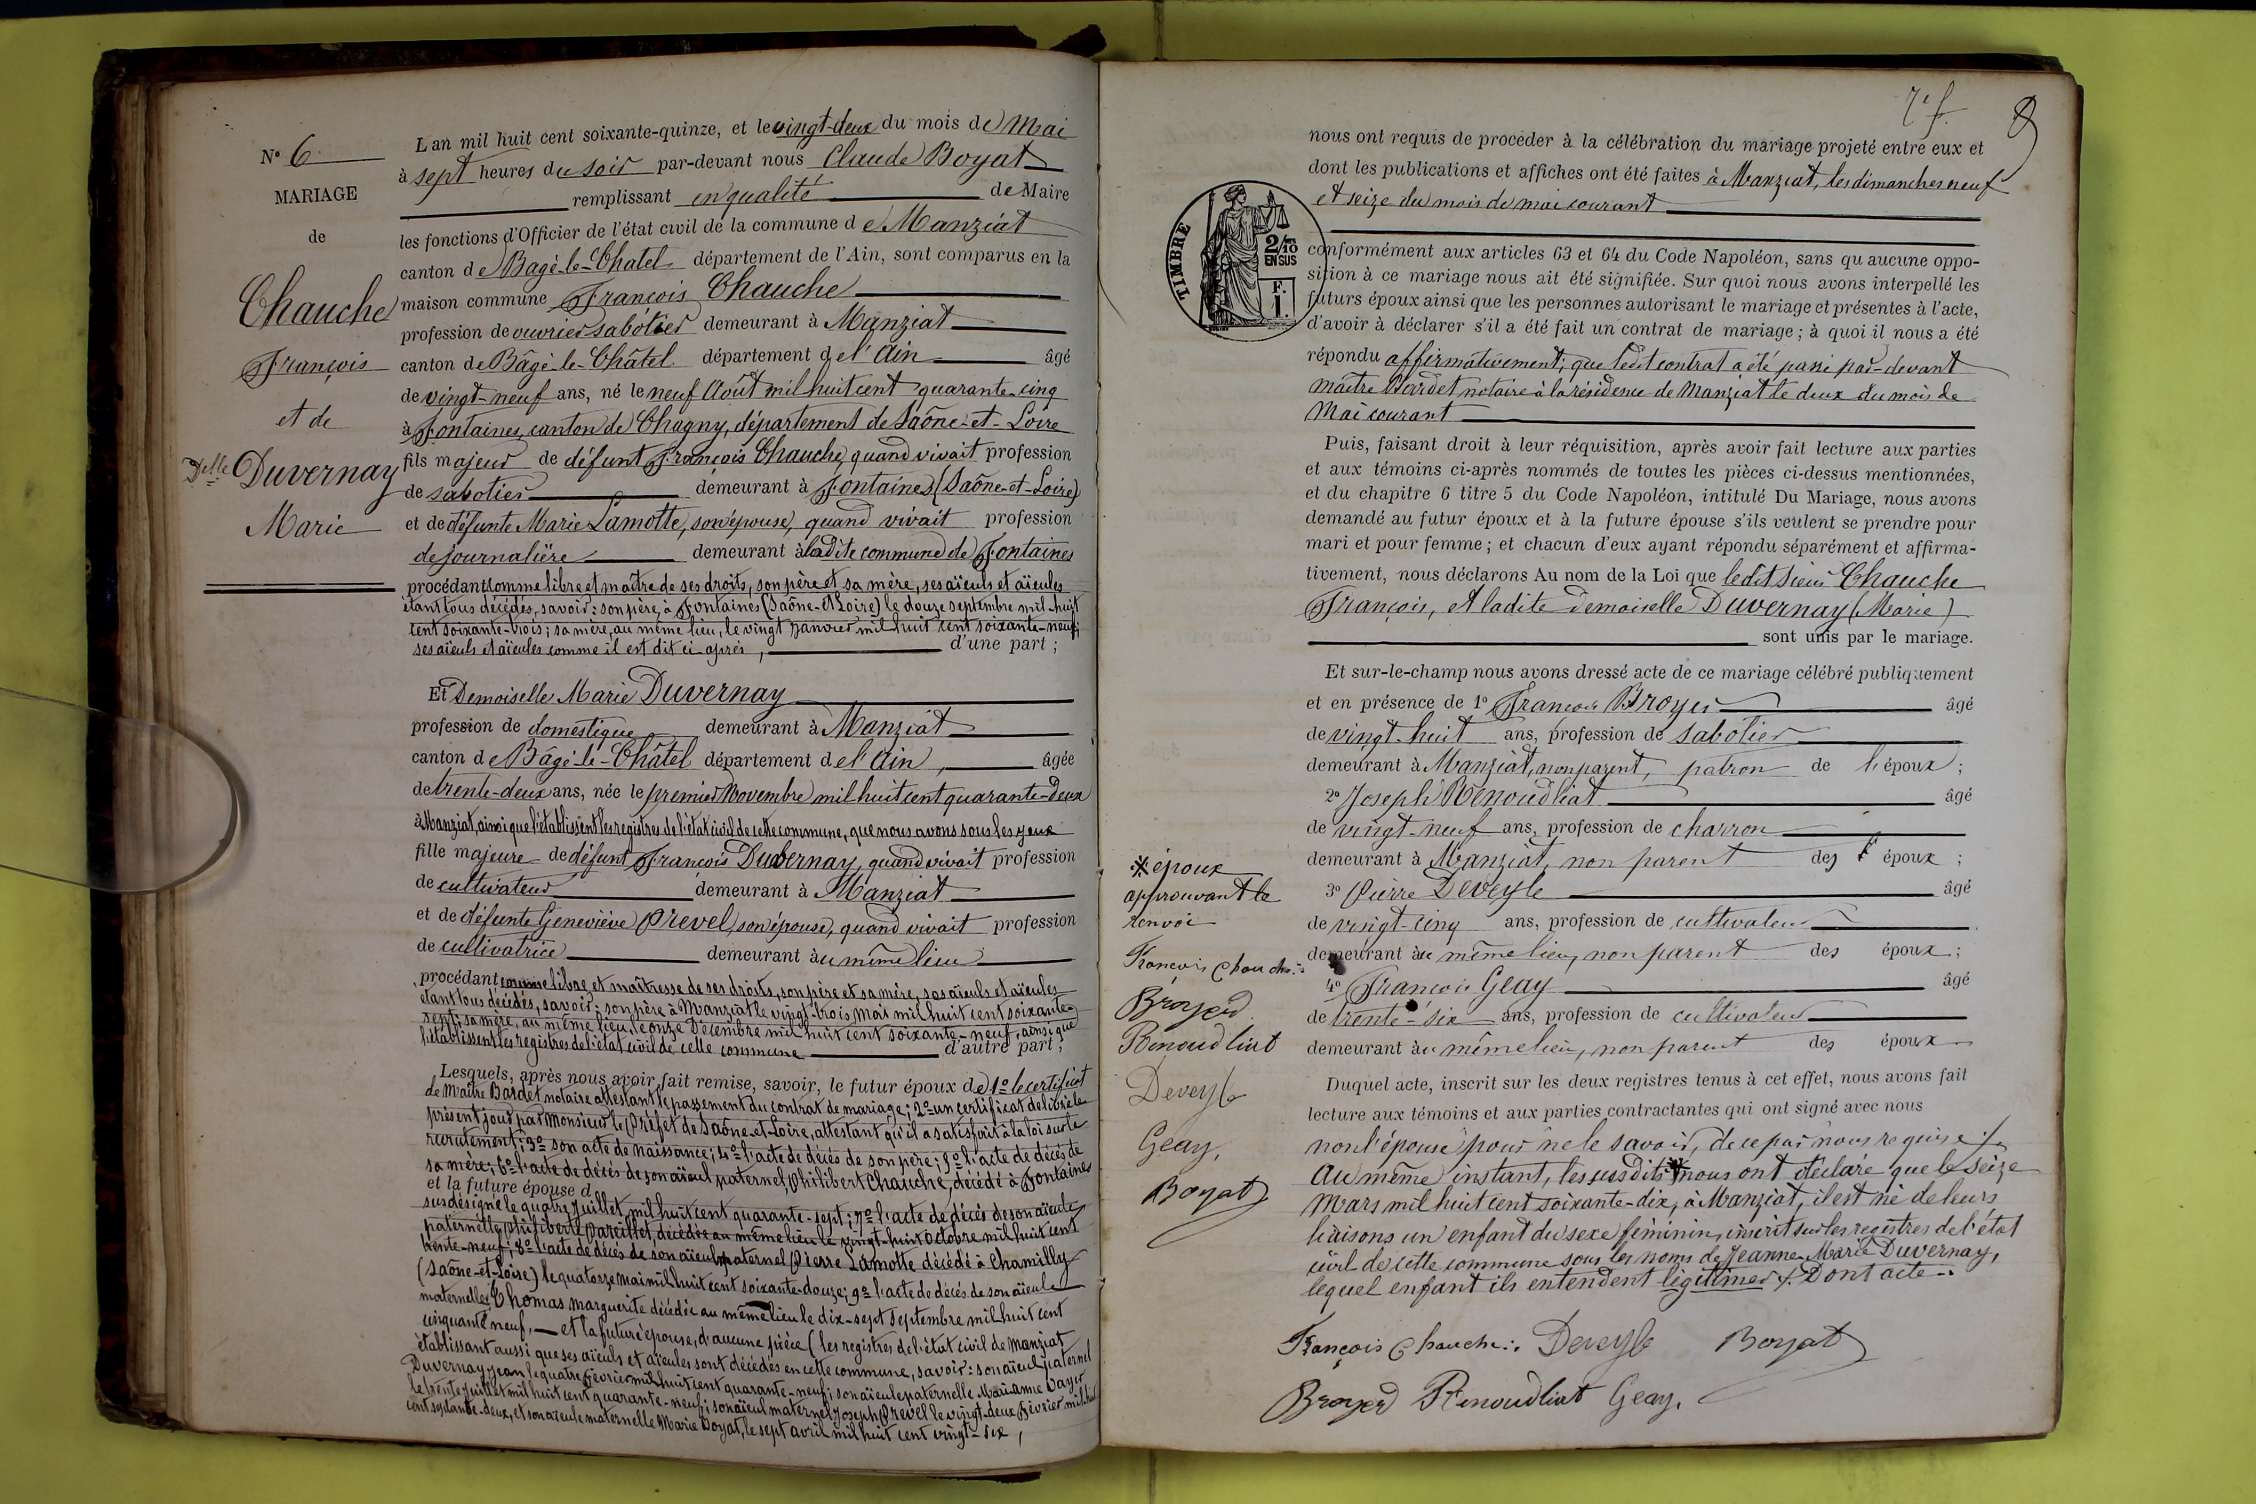 N° 6
MARIAGE
de
Chauche
François
et de
Delle Duvernay
Marie
L'an mil huit cent soixante-quinze, et le vingt-deux du mois de Mai
à sept heures du soir par-devant nous Claude Boyat
remplissant en qualité de Maire
les fonctions d'Officier de l'état civil de la commune de Manziat
canton de Bagé-le-Chatel département de l'Ain, sont comparus en la
maison commune François Chauche
profession de ouvrier sabotier demeurant à Manziat
canton de Bâgé-le-Châtel département de l'Ain âgé
de vingt-neuf ans, né le neuf Août mil huit cent quarante-cinq
à Fontaines, canton de Chagny, département de Saône-et-Loire
fils majeur de défunt François Chauche, quand vivait profession
de sabotier demeurant à Fontaines (Saône-et-Loire)
et de défunte Marie Lamotte, son épouse, quand vivait profession
de journalière demeurant à ladite commune de Fontaines
procédant comme libre et maître de ses droits, son père et sa mère, ses aïeuls et aïeules
étant tous décédés, savoir : son père, à Fontaines (Saône-et-Loire) le douze septembre mil-huit
cent soixante-trois ; sa mère, au même lieu, le vingt janvier mil huit cent soixante-neuf ;
ses aïeuls et aïeules comme il est dit ci après, d'une part ;
Et Demoiselle Marie Duvernay
profession de domestique demeurant à Manziat
canton de Bâgé-le-Châtel département de l'Ain, âgée
de trente-deux ans, née le premier Novembre mil huit cent quarante-deux
à Manziat, ainsi que l'établissent les registres de l'état civil de cette commune, que nous avons sous les yeux
fille majeure de défunt François Duvernay, quand vivait profession
de cultivateur demeurant à Manziat
et de défunte Geneviève Prevel, son épouse, quand vivait profession
de cultivatrice demeurant au même lieu
procédant comme libre et maîtresse de ses droits, son père et sa mère, ses aïeuls et aïeules
étant tous décédés, savoir : son père à Manziat le vingt-trois Mai mil huit cent soixante-
sept ; sa mère, au même lieu, le onze Décembre mil huit cent soixante-neuf, ainsi que
l'établissent les registres de l'état civil de cette commune d'autre part ;
Lesquels, après nous avoir fait remise, savoir, le futur époux de 1° le certificat
de Maître Bardet notaire attestant le passement du contrat de mariage ; 2° un certificat délivré le
présent jour par Monsieur le Préfet de Saône-et-Loire, attestant qu'il a satisfait à la loi sur le
recrutement ; 3° son acte de naissance ; 4° l'acte de décès de son père ; 5° l'acte de décès de
sa mère ; 6° l'acte de décès de son aïeul paternel, Philibert Chauche, décédé à Fontaines
et la future épouse d
susdésigné le quatre Juillet mil huit cent quarante-sept ; 7° l'acte de décès de son aïeule
paternelle Philiberte Pareillet, décédée au même lieu le vingt-huit Octobre mil huit cent
trente-neuf ; 8° l'acte de décès de son aïeul maternel Pierre Lamotte décédé à Chamilly
(Saône-et-Loire) le quatorze mai mil huit cent soixante-douze ; 9° l'acte de décès de son aïeule
maternelle Thomas Marguerite décédée au même lieu le dix-sept Septembre mil huit cent
cinquante neuf, et la future épouse, d'aucune pièce (les registres de l'état civil de Manziat
établissant aussi que ses aïeuls et aïeules sont décédés en cette commune, savoir : son aïeul paternel
Duvernay Jean le quatre Février mil huit cent quarante-neuf ; son aïeule paternelle Marianne
le trente Juillet mil huit cent quarante-neuf ; son aïeul maternel Joseph Prevel le vingt-deux Février mil huit
cent soixante-deux, et son aïeule maternelle Marie Boyat, le sept avril mil huit cent vingt-six,
7e f. 8
TIMBRE
2/10
EN SUS
F.
1.
nous ont requis de procéder à la célébration du mariage projeté entre eux et
dont les publications et affiches ont été faites à Manziat, les dimanches neuf
et seize du mois de mai courant
conformément aux articles 63 et 64 du Code Napoléon, sans qu'aucune oppo-
sition à ce mariage nous ait été signifiée. Sur quoi nous avons interpellé les
futurs époux ainsi que les personnes autorisant le mariage et présentes à l'acte,
d'avoir à déclarer s'il a été fait un contrat de mariage ; à quoi il nous a été
répondu affirmativement ; que ledit contrat a été passé par-devant
Maître Bardet notaire à la résidence de Manziat le deux du mois de
Mai courant
Puis, faisant droit à leur réquisition, après avoir fait lecture aux parties
et aux témoins ci-après nommés de toutes les pièces ci-dessus mentionnées,
et du chapitre 6 titre 5 du Code Napoléon, intitulé Du Mariage, nous avons
demandé au futur époux et à la future épouse s'ils veulent se prendre pour
mari et pour femme ; et chacun d'eux ayant répondu séparément et affirma-
tivement, nous déclarons Au nom de la Loi que ledit sieur Chauche
François, et ladite demoiselle Duvernay (Marie)
sont unis par le mariage.
Et sur-le-champ nous avons dressé acte de ce mariage célébré publiquement
et en présence de 1° François Broyer âgé
de vingt-huit ans, profession de sabotier
demeurant à Manziat, non parent, patron de l'époux ;
2° Joseph Renoudliat âgé
de vingt-neuf ans, profession de charron
demeurant à Manziat, non parent des époux ;
3° Pierre Deveyle âgé
de vingt-cinq ans, profession de cultivateur
demeurant au même lieu, non parent des époux ;
4° François Geay âgé
de trente-six ans, profession de cultivateur
demeurant au même lieu, non parent des époux
Duquel acte, inscrit sur les deux registres tenus à cet effet, nous avons fait
lecture aux témoins et aux parties contractantes qui ont signé avec nous
non l'épouse pour ne le savoir, de ce par nous requise ./.
Au même instant, les susdits * nous ont déclaré que le seize
Mars mil huit cent soixante-dix, à Manziat, il est né de leurs
liaisons un enfant du sexe féminin, inscrit sur les registres de l'état
civil de cette commune sous les noms de Jeanne-Marie Duvernay,
lequel enfant ils entendent légitimer ./. Dont acte.
François Chauche Deveyle Boyat
Broyer Renoudliat Geay.
* époux
approuvant le
renvoi
François Chauche
Broyer
Renoudliat
Deveyle
Geay.
Boyat